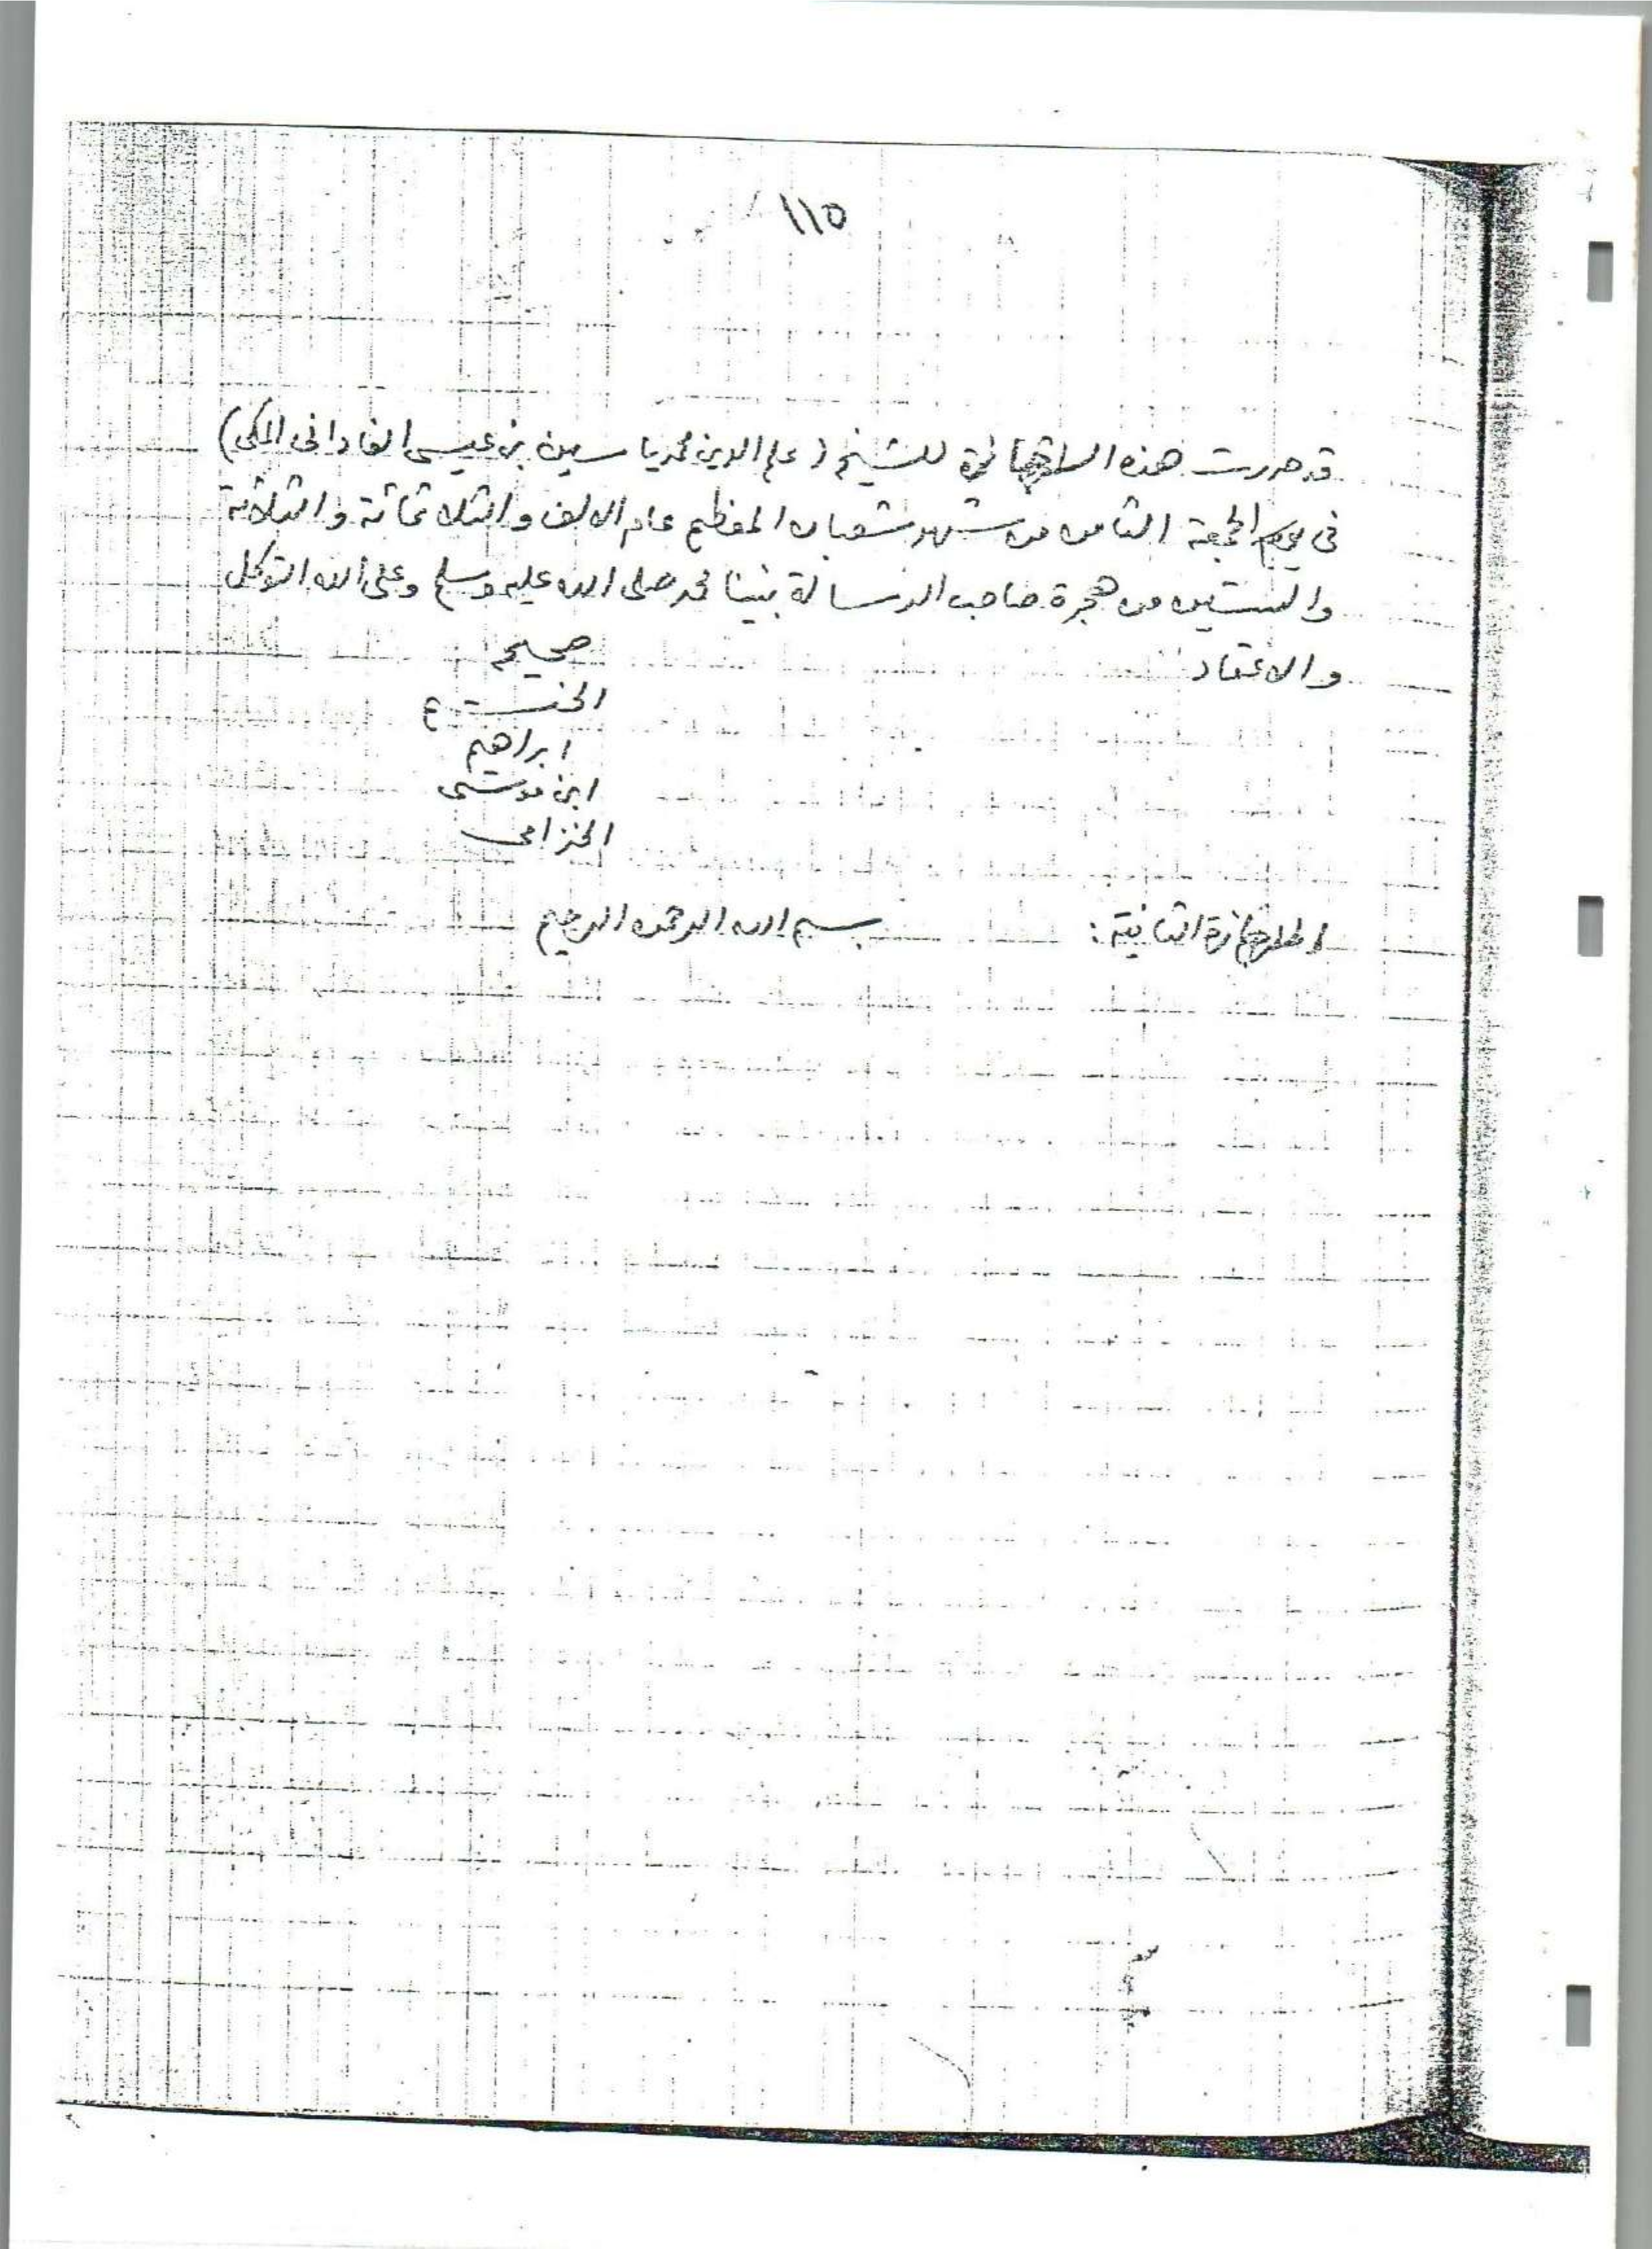 ١١٥
قد حررت هذه الاجازة للشيخ (علم الدين محمد ياسين بن عيسى الفاداني المكي)
فى يوم الجمعة الثامن من شهر شعبان المعظم عام الالف والثلاثمائة والثلاثة
والستين من هجرة صاحب الرسالة نبينا محمد صلى الله عليه وسلم وعلى الله التوكل
والاعتماد
صحيح
ابراهيم
ابن موسى
الخزامى
الاجازة الثانية: بسم الله الرحمن الرحيم